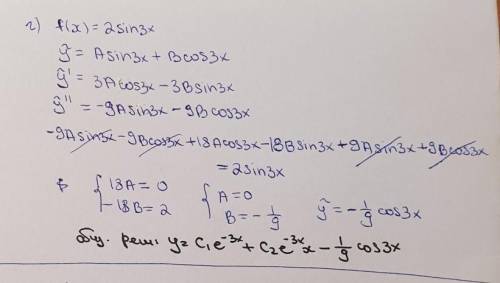 г) f(x) = 2sin3x
ỹ = Asin3x + Bcos3x
ỹ' = 3Acos3x - 3Bsin3x
ỹ'' = -9Asin3x - 9Bcos3x
-9Asin3x - 9Bcos3x + 18Acos3x - 18Bsin3x + 9Asin3x + 9Bcos3x
= 2sin3x
{ 18A = 0 -18B = 2 { A = 0 B = -1/9 ỹ = -1/9 cos3x
общ. реш: y = C₁e^-3x + C₂e^-3x x - 1/9 cos3x